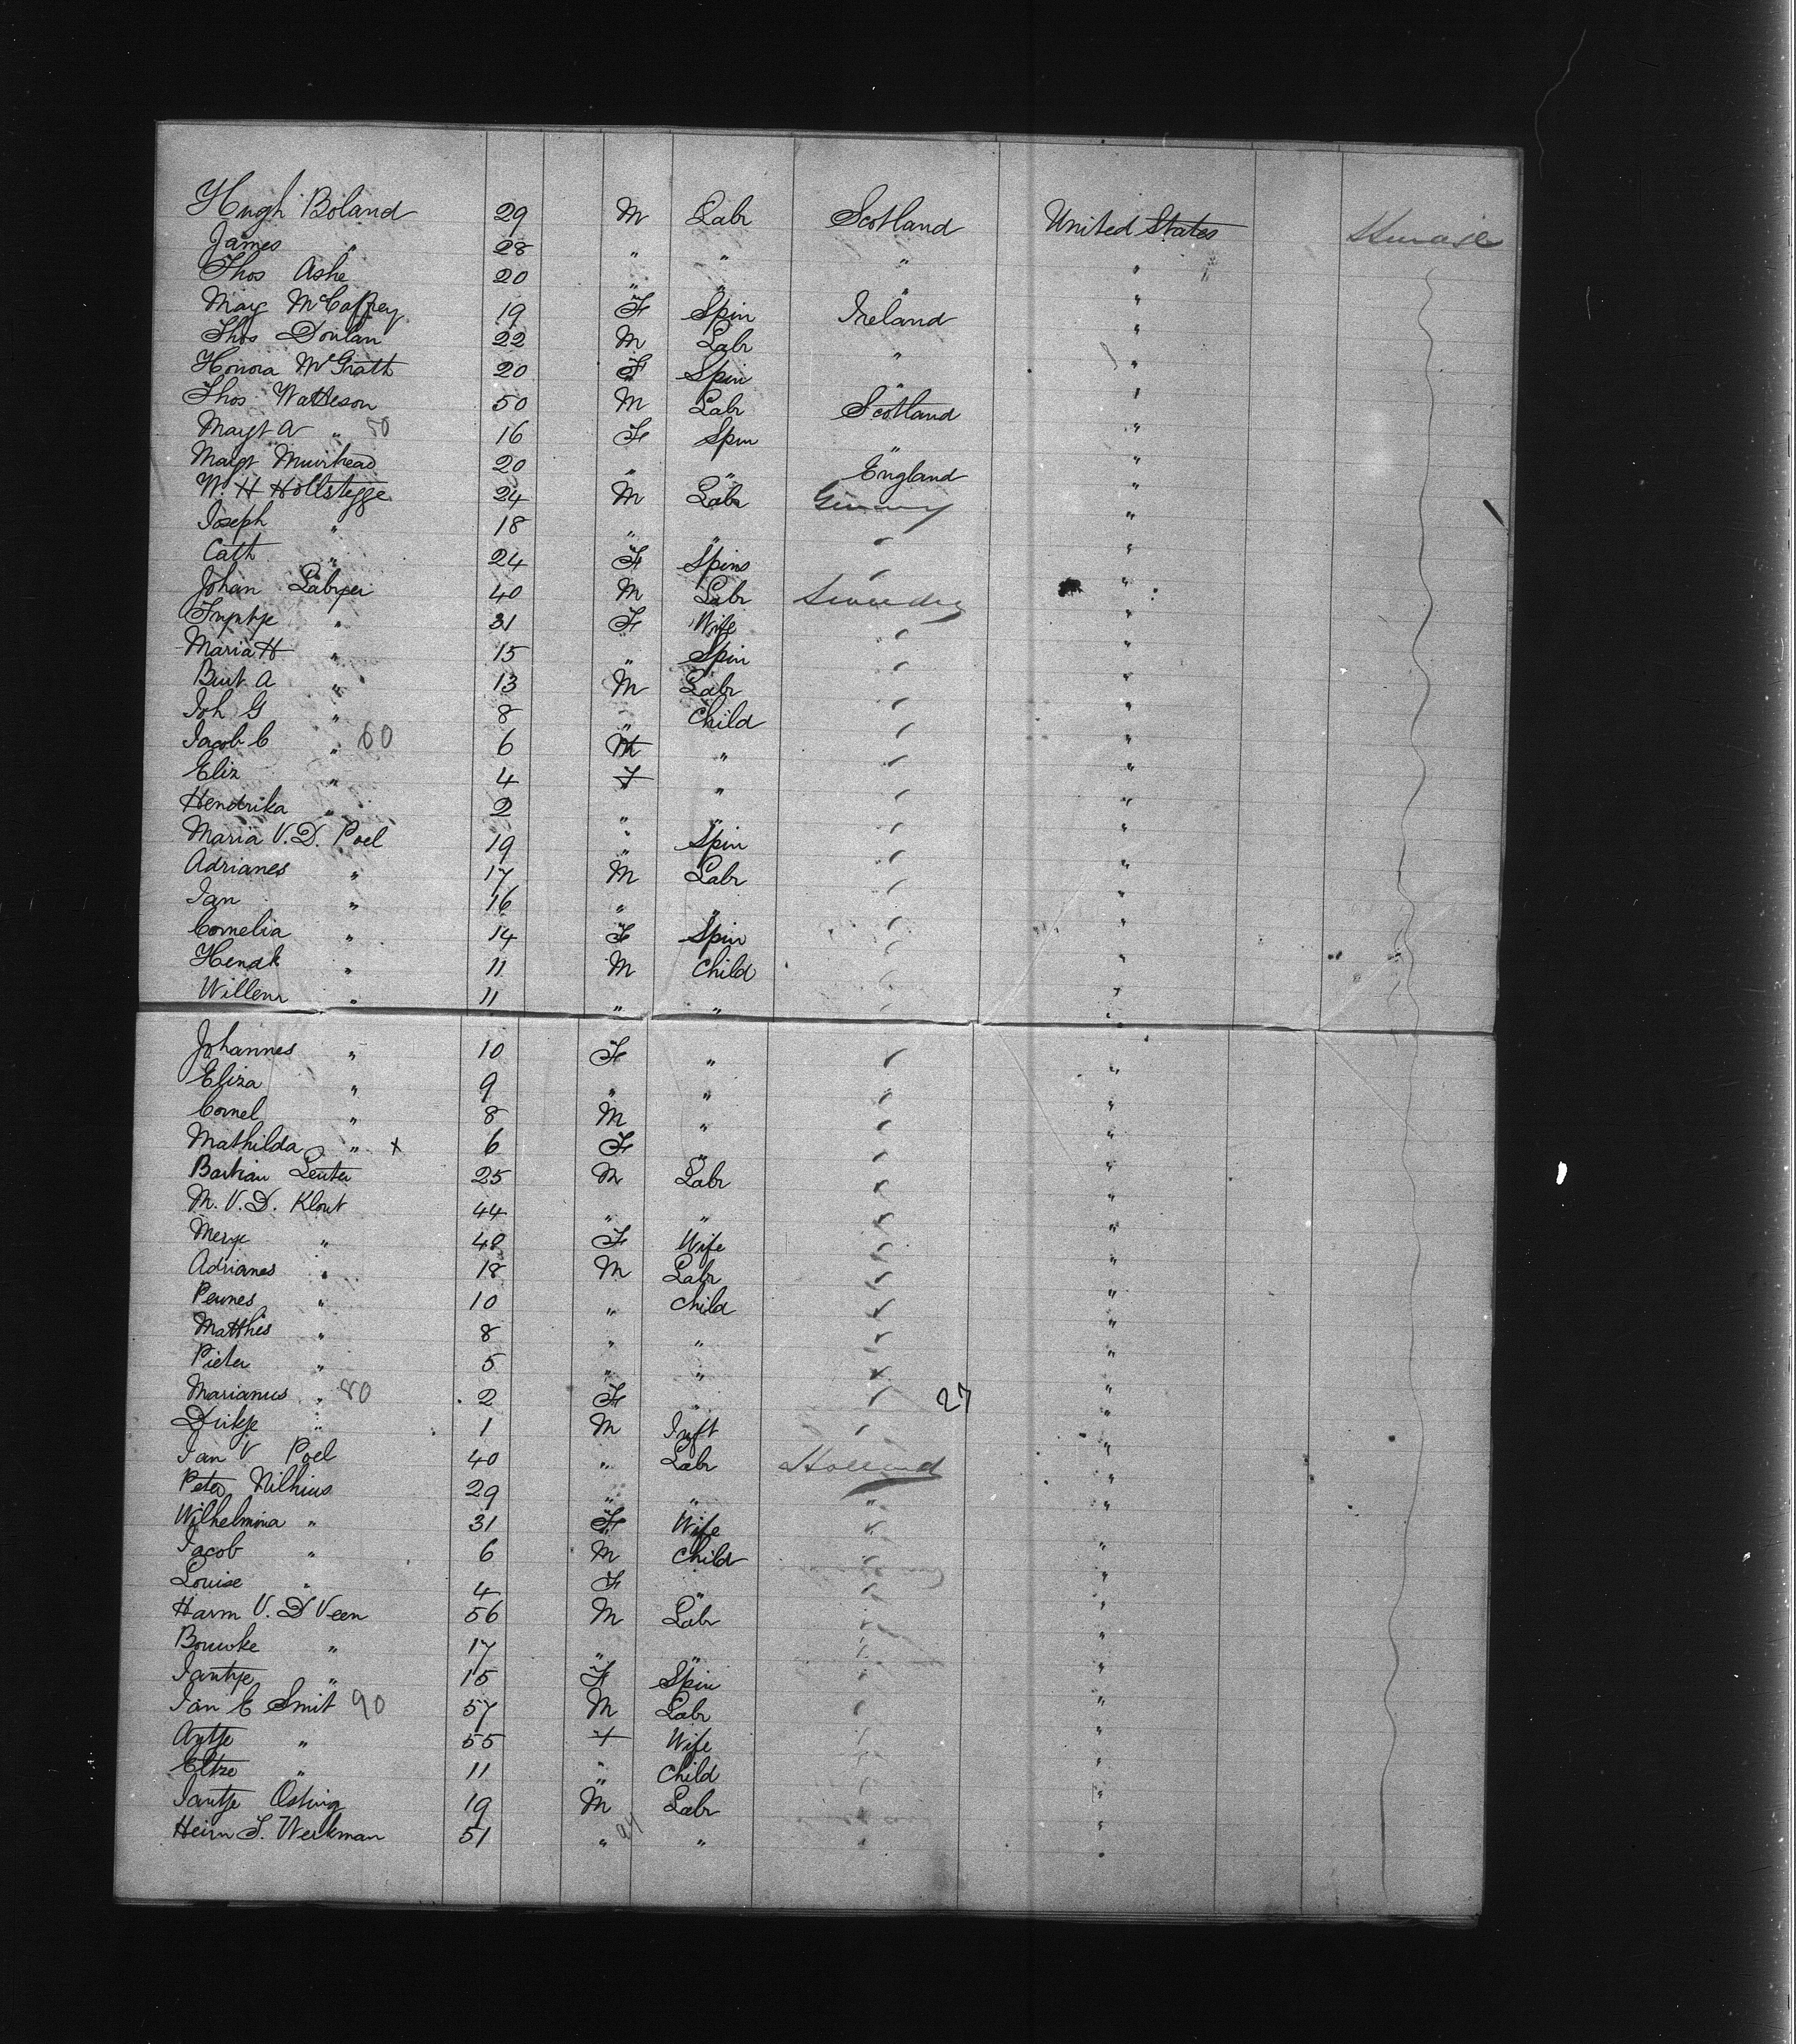 Hugh Boland 29 M Labr Scotland United States Steerage
James " 28 " " " "
Thos Ashe 20 " " " "
Mary McCaffrey 19 F Spin Ireland "
Thos Donlan 22 M Labr " "
Honora McGrath 20 F Spin " "
Thos Watteson 50 M Labr Scotland "
Margt A " 50 16 F Spin " "
Margt Muirhead 20 " " England "
Wm H Hollstegge 24 M Labr Germany "
Joseph " 18 " " " "
Cath " 24 F Spins " "
Johan Labryer 40 M Labr "
" 31 F Wife " "
Maria H " 15 " Spin " "
Burt A " 13 M Labr " "
Joh G " 8 " Child " "
Jacob C " 60 6 M " " "
Eliz " 4 F " " "
Hendrika " 2 " " " "
Maria V. D. Poel 19 " Spin " "
Adrianes " 17 M Labr " "
Jan " 16 " " " "
Cornelia " 14 F Spin " "
Hendk " 11 M Child " "
Willem " 11 " " " "
Johannes " 10 F " " "
Eliza " 9 " " " "
Cornel " 8 M " " "
Mathilda " x 6 F " " "
Bastian Leuter 25 M Labr " "
M. V. D. Klout 44 " " " "
" 48 F Wife " "
Adrianes " 18 M Labr " "
" 10 " Child " "
Matthis " 8 " " " "
Pieter " 5 " " " "
Marianus " 80 2 F " " 27 "
Dirkje " 1 M Inft " "
Jan V Poel 40 " Labr Holland "
Peter Nilhius 29 " " " "
Wilhelmina " 31 F Wife " "
Jacob " 6 M Child " "
Louise " 4 F " " "
Harm V. D Veen 56 M Labr " "
Bouwke " 17 " " " "
Jantje " 15 F Spin " "
Jan E Smit 90 57 M Labr " "
Antje " 55 F Wife " "
Eltze " 11 " Child " "
Jantje Osting 19 M Labr " "
Heirn J. Werkman 51 " 94 " " "